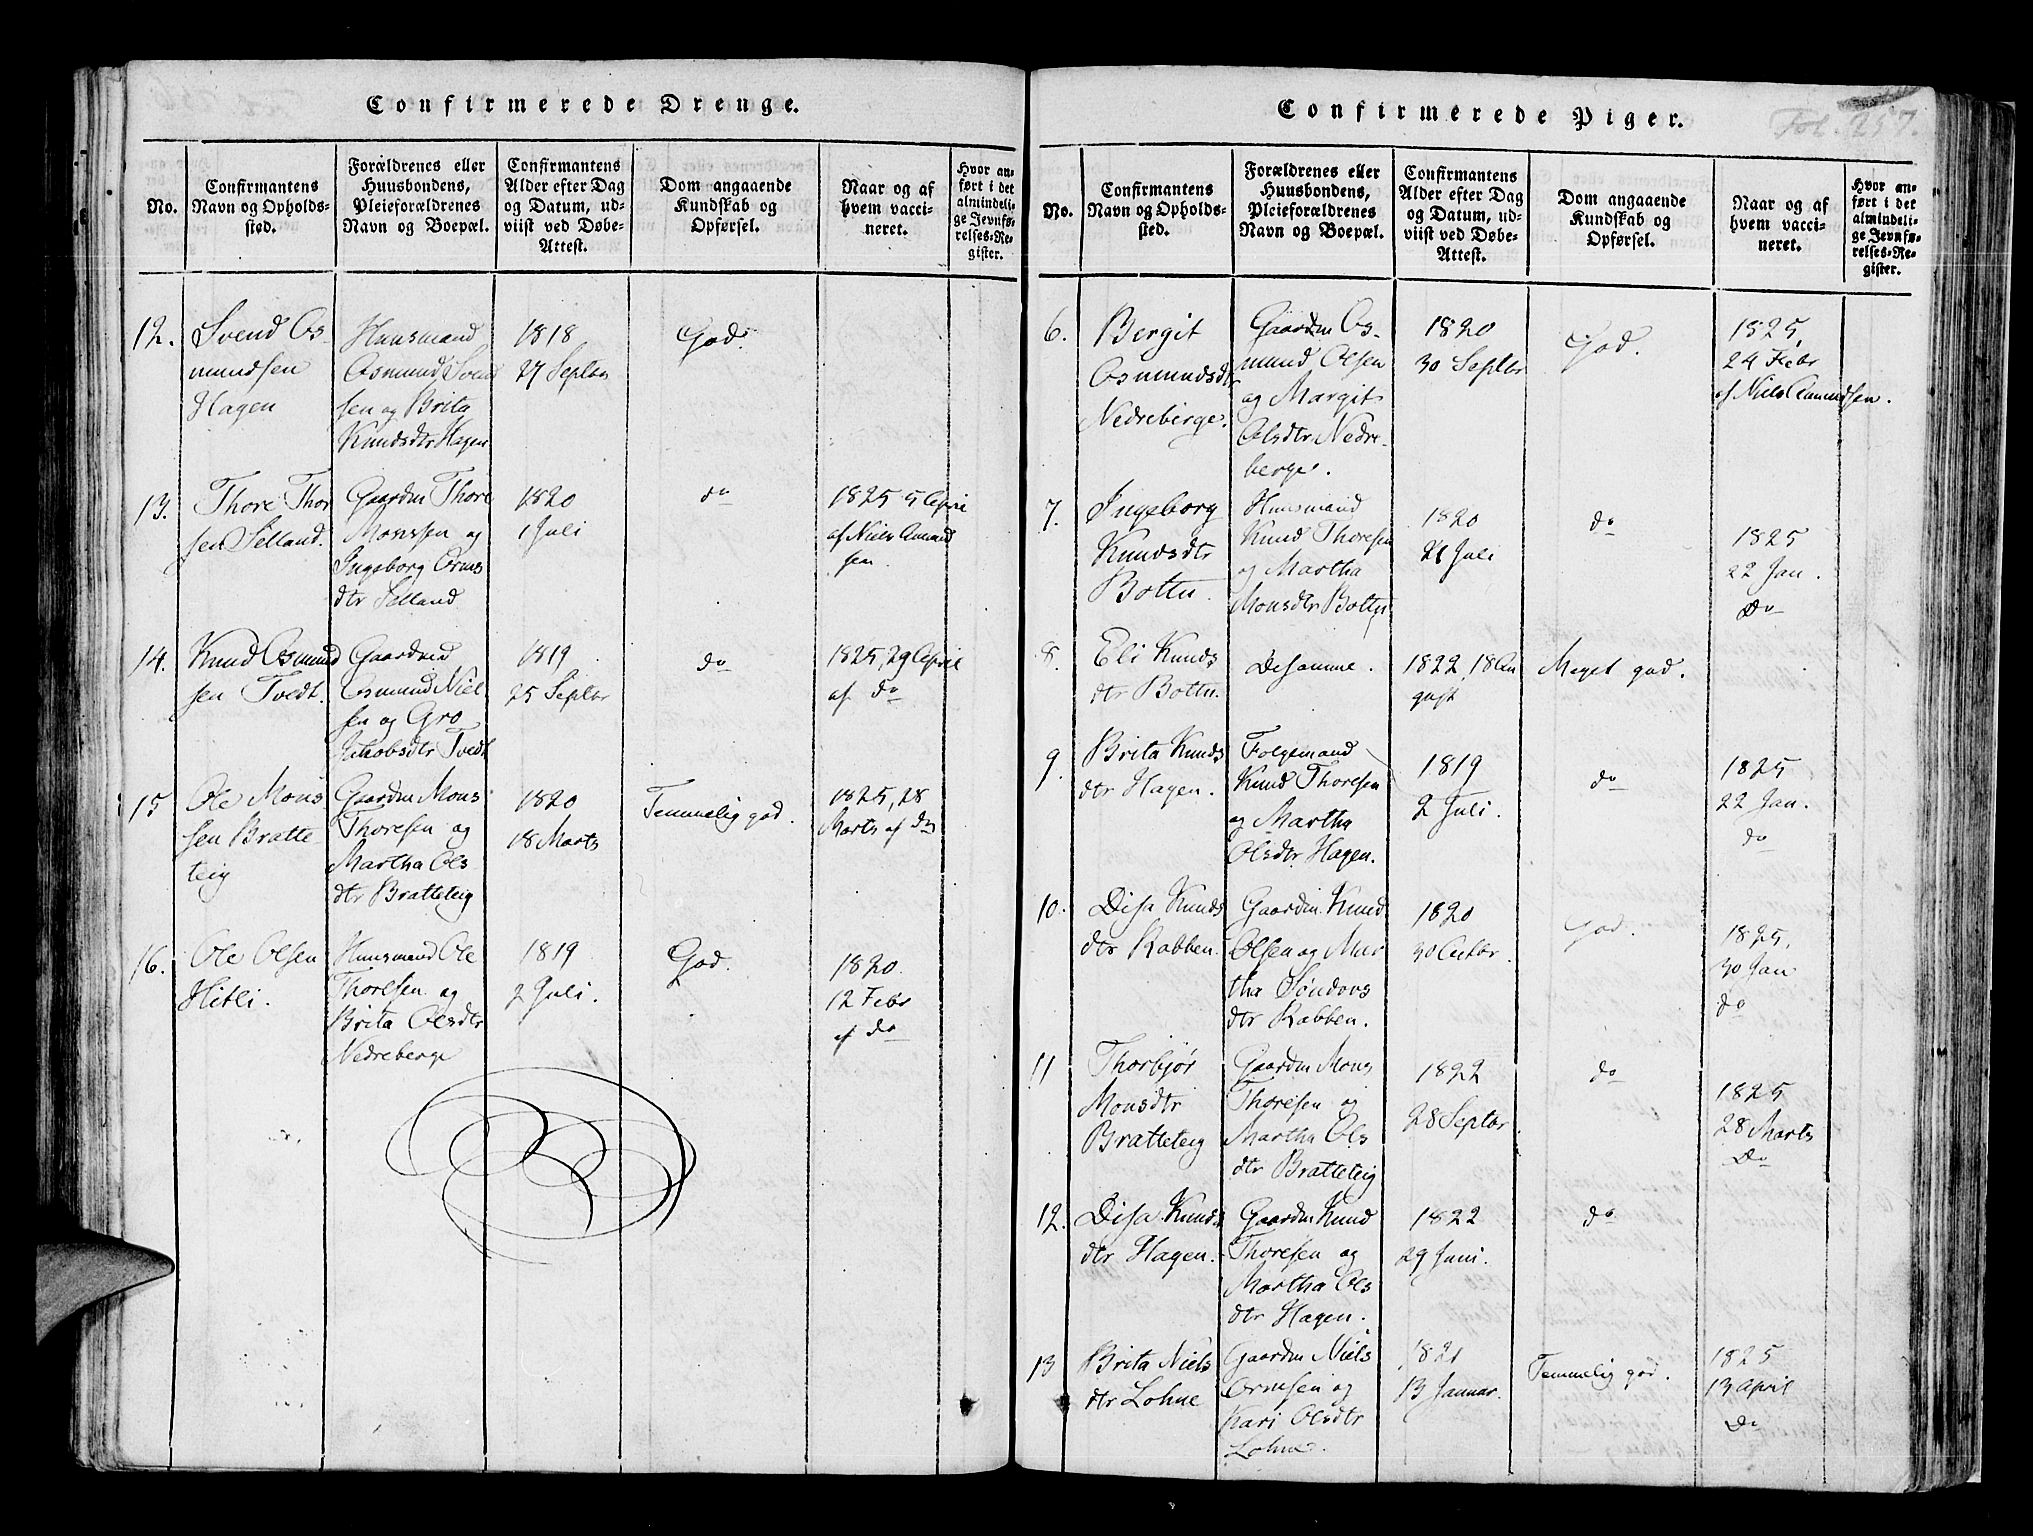 Confirmerede Drenge.
No.
Confirmantens
Navn og Opholds-
sted.
Forældrenes eller
Huusbondens,
Pleieforældrenes
Navn og Boepæl.
Confirmantens
Alder efter Dag
og Datum, ud-
viist ved Døbe-
Attest.
Dom angaaende
Kundskab og
Opførsel.
Naar og af
hvem vacci-
neret.
Hvor an-
ført i det
almindeli-
ge Jevnfø-
relses-Re-
gister.
12.
Svend Os-
mundsen
Hagen
Huusmand
Osmund Svend
sen og Brita
Knudsdtr Hagen
1818
27 Septbr
God.
13.
Thore Thor
sen Selland.
Gaardm Thore
Monssen og
Ingeborg Orms
dtr Selland
1820
1 Juli
do
1825 5 April
af Niels Amund
sen.
14.
Knud Osmund
sen Tvedt.
Gaardmd
Osmund Niel
sen og Gro
Jakobsdtr Tvedt
1819
25 Septbr
do
1825, 29 April
af do
15
Ole Mons
sen Bratte-
teig
Gaardm Mons
Thoresen og
Martha Ols
dtr Bratteteig
1820
18 Marts
Temmelig god.
1825, 28
Marts af do
16.
Ole Olsen
Hitli.
Huusmand Ole
Thoresen og
Brita Olsdtr
Nedreberge
1819
2 Juli.
God.
1820.
12 Febr
af do
Confirmerede Piger.
Fol. 257.
No.
Confirmantens
Navn og Opholds-
sted.
Forældrenes eller
Huusbondens,
Pleieforældrenes
Navn og Boepæl.
Confirmantens
Alder efter Dag
og Datum, ud-
viist ved Døbe-
Attest.
Dom angaaende
Kundskab og
Opførsel.
Naar og af
hvem vacci-
neret.
Hvor an-
ført i det
almindeli-
ge Jevnfø-
relses-Re-
gister.
6.
Bergit
Osmundsdtr
Nedreberge.
Gaardm Os-
mund Olsen
og Margit
Olsdtr Nedre-
berge.
1820
30 Septbr
God.
1825,
24 Febr
af Niels Amundsen.
7.
Ingeborg
Knudsdtr
Bottn.
Huusmand
Knud Thoresen
og Martha
Monsdtr Bottn.
1820
21 Juli
do
1825
22 Jan.
Do
8.
Eli Knuds
dtr Bottn.
Desamme.
1822, 18 Au
gust
Meget god.
9.
Brita Knuds
dtr Hagen.
Folgemand
Knud Thoresen
og Martha
Olsdtr Hagen.
1819
2 Juli.
do
1825
22 Jan.
do
10.
Disa Knuds
dtr Rabben.
Gaardm Knud
Olsen og Mar
tha Søndovs
dtr Rabben.
1820
30 Octbr.
God.
1825,
30 Jan
do
11
Thorbjør
Monsdtr
Bratteteig
Gaardm Mons
Thoresen og
Martha Ols
dtr Bratteteig
1822
28 Septbr.
do
1825
28 Marts
Do
12.
Disa Knuds
dtr Hagen.
Gaardm Knud
Thoresen og
Martha Ols
dtr Hagen.
1822
29 Juni.
do
13
Brita Niels
dtr Lohne
Gaardm Niels
Ormsen og
Kari Olsdtr
Lohne.
1821
13 Januar.
Temmelig god.
1825
13 April
Do